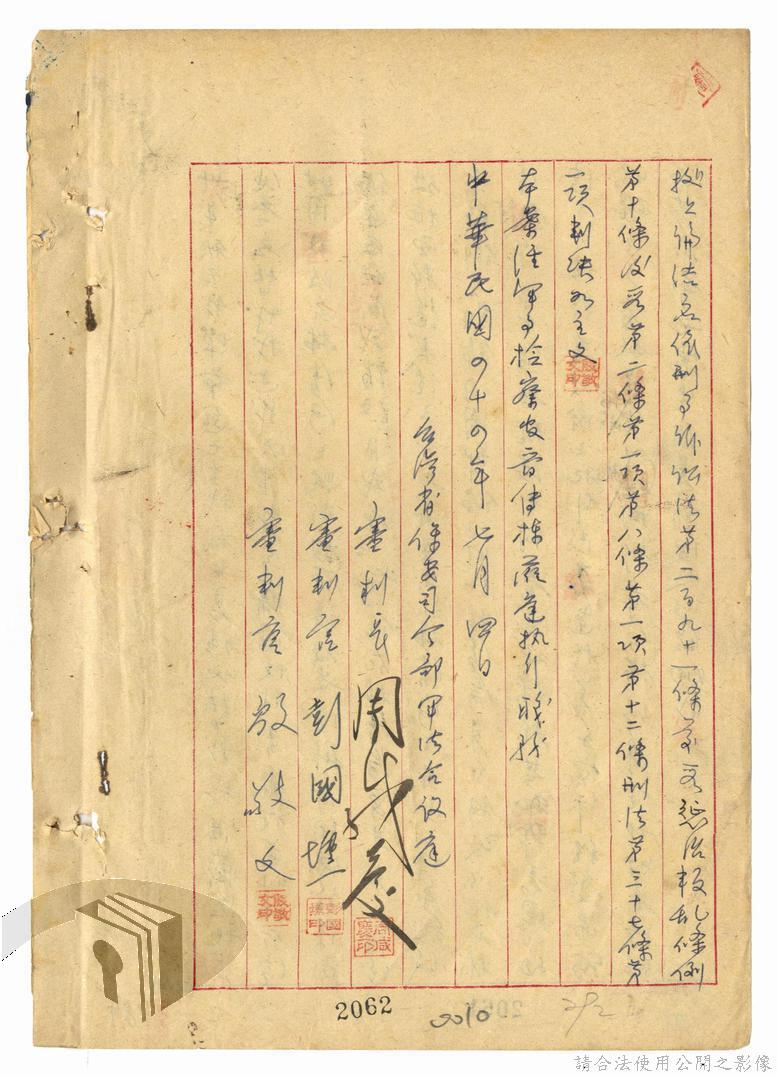 據上論結應依刑事訴訟法第二百九十一條前段懲治叛亂條例
第十條後段第二條第一項第八條第一項第十二條刑法第三十七條第
一項判決如主文
殷敬文印
本案經軍事檢察官晉傳棟蒞庭執行職務
中華民國四十四年七月四日
台灣省保安司令部軍法合議庭
審判長周咸慶
周咸慶印
審判官彭國壎
彭國壎印
審判官殷敬文
殷敬文印
2062
0010
212
請合法使用公開之影像